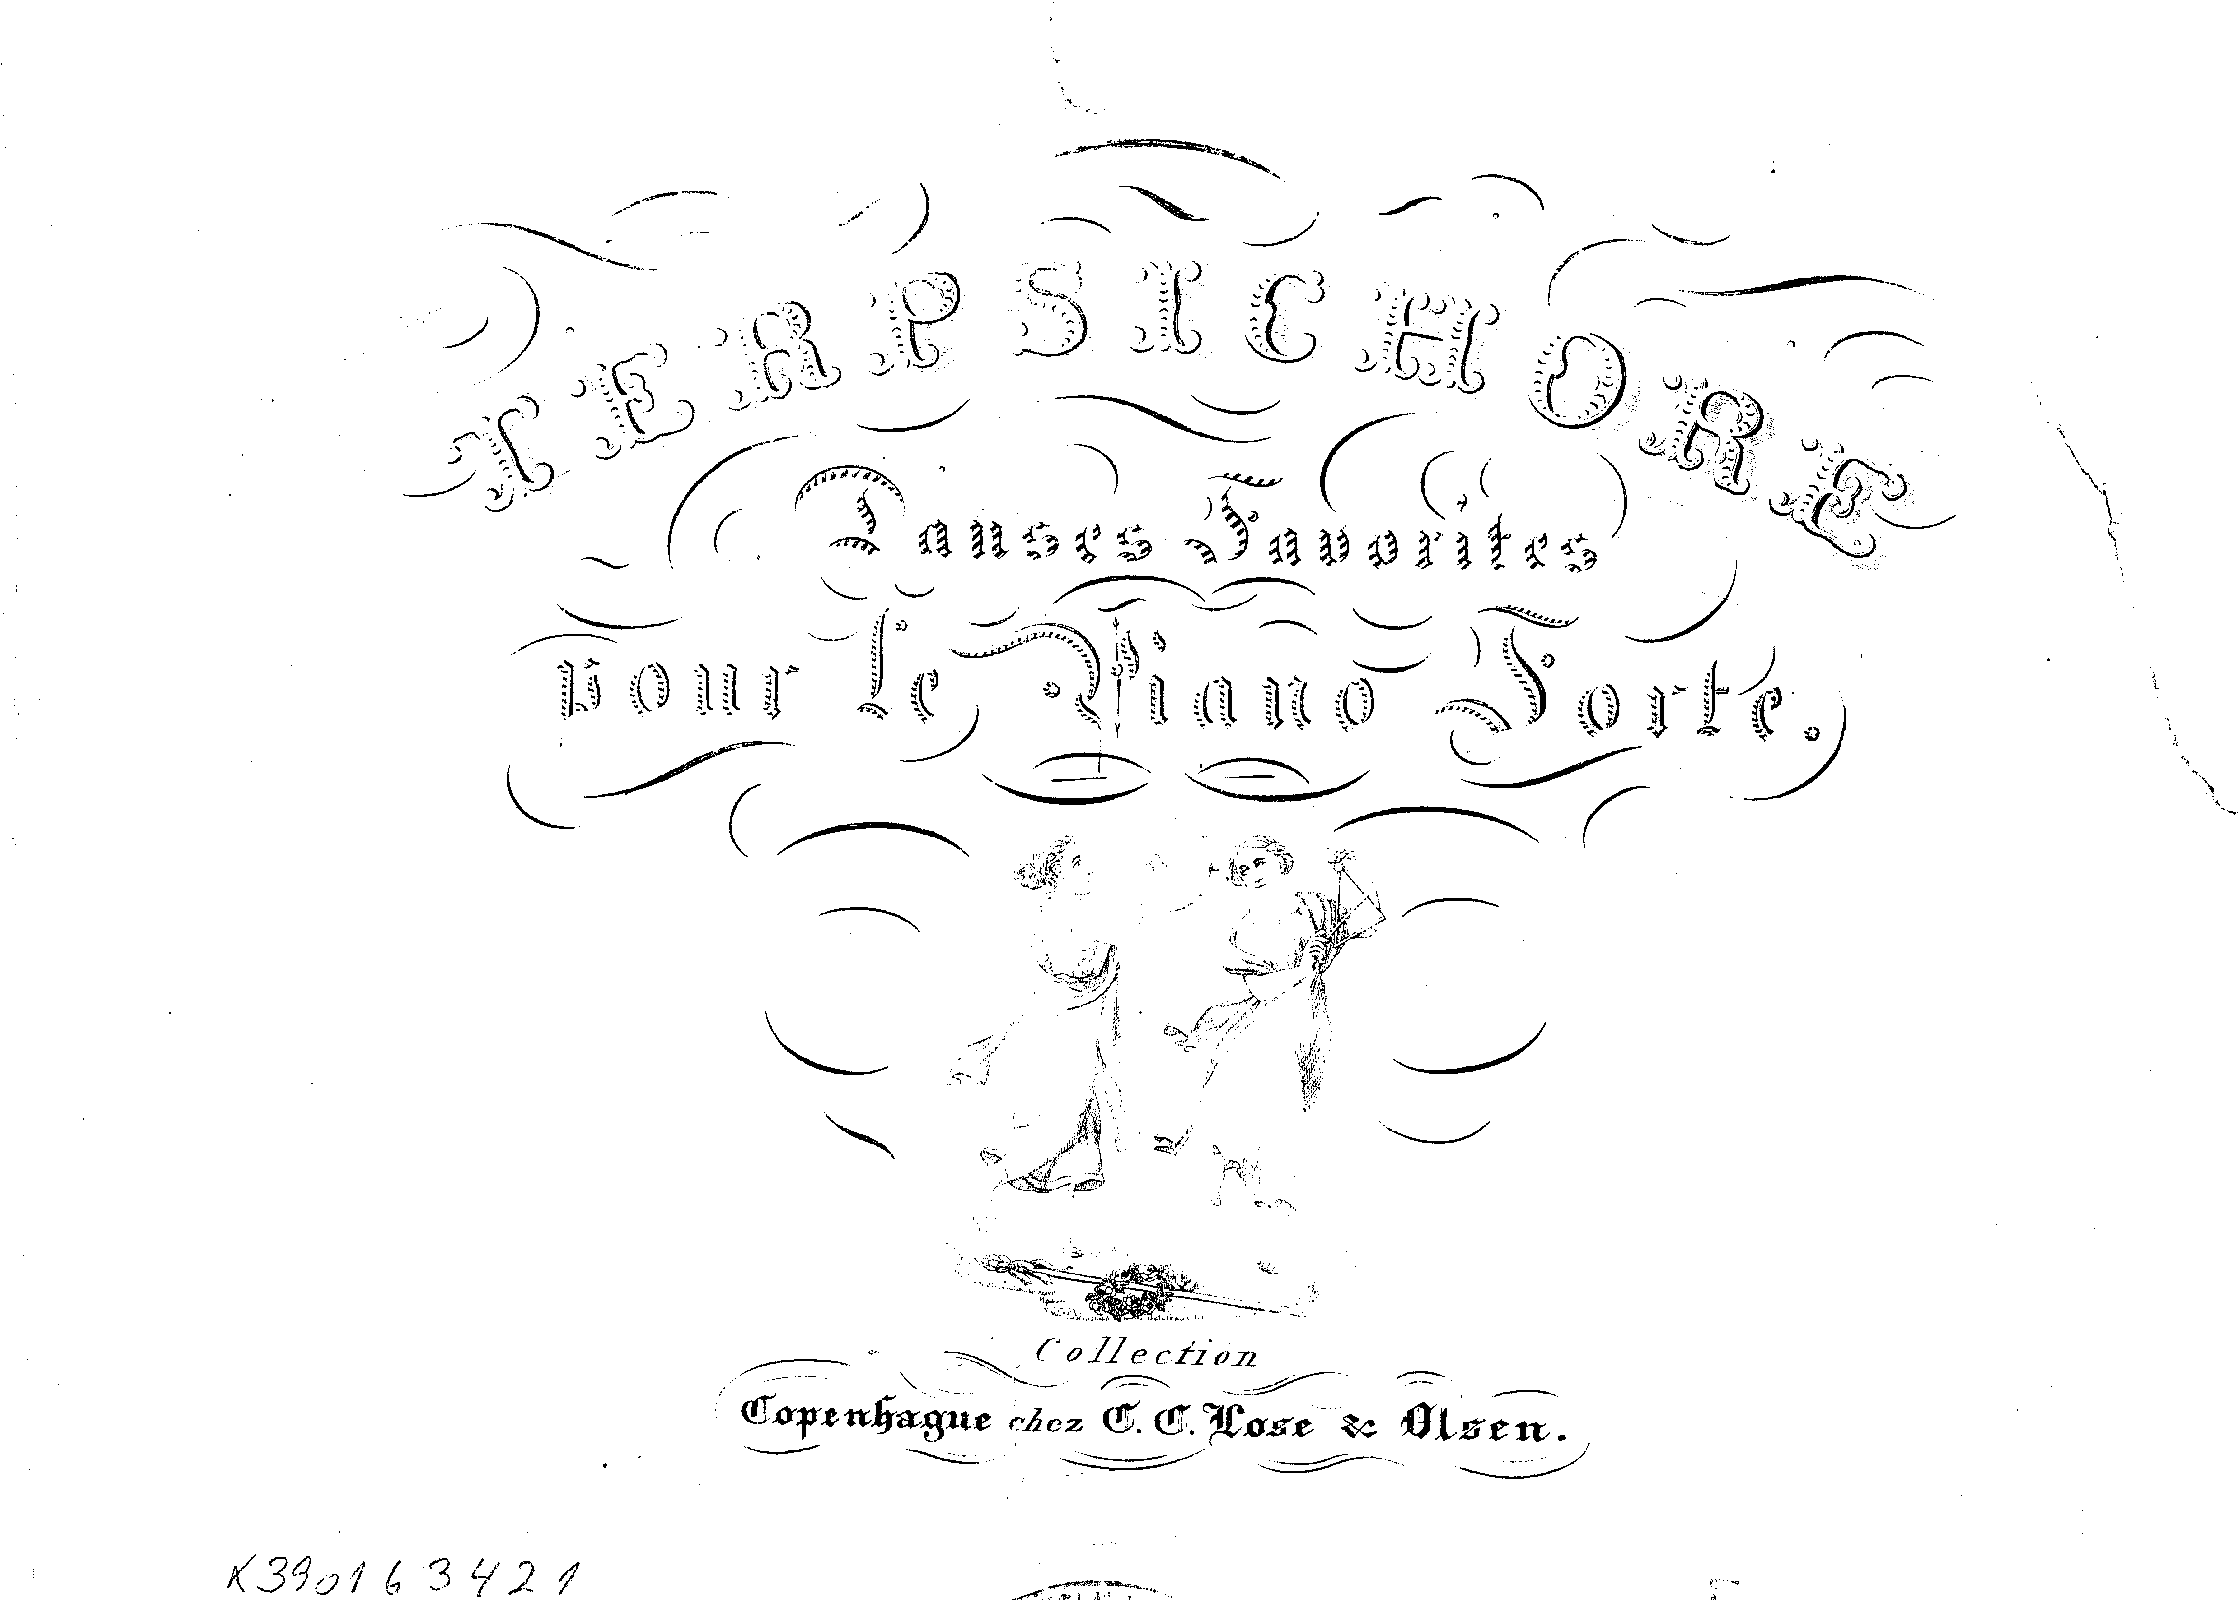 TERPSICHORE
Danses Favorites
pour le Piano Forte.
Collection
Copenhague chez C. C. Lose & Olsen.
K390163421